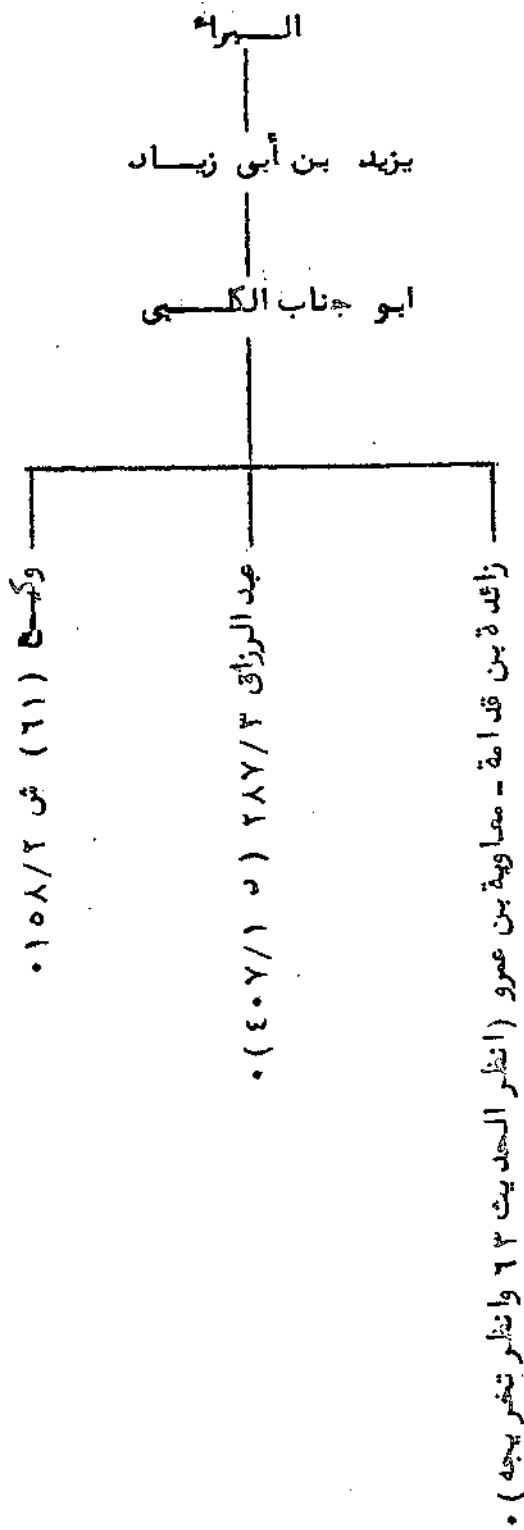 البراء
يزيد بن أبى زياد
ابو جناب الكلبى
زائدة بن قدامة - معاوية بن عمرو (انظر الحديث ٦٣ وانظر تخريجه) .
عبد الرزاق ٢٨٧/٣ ( د ٤٠٧/١) .
وكيع (٦١) ش ١٥٨/٢.